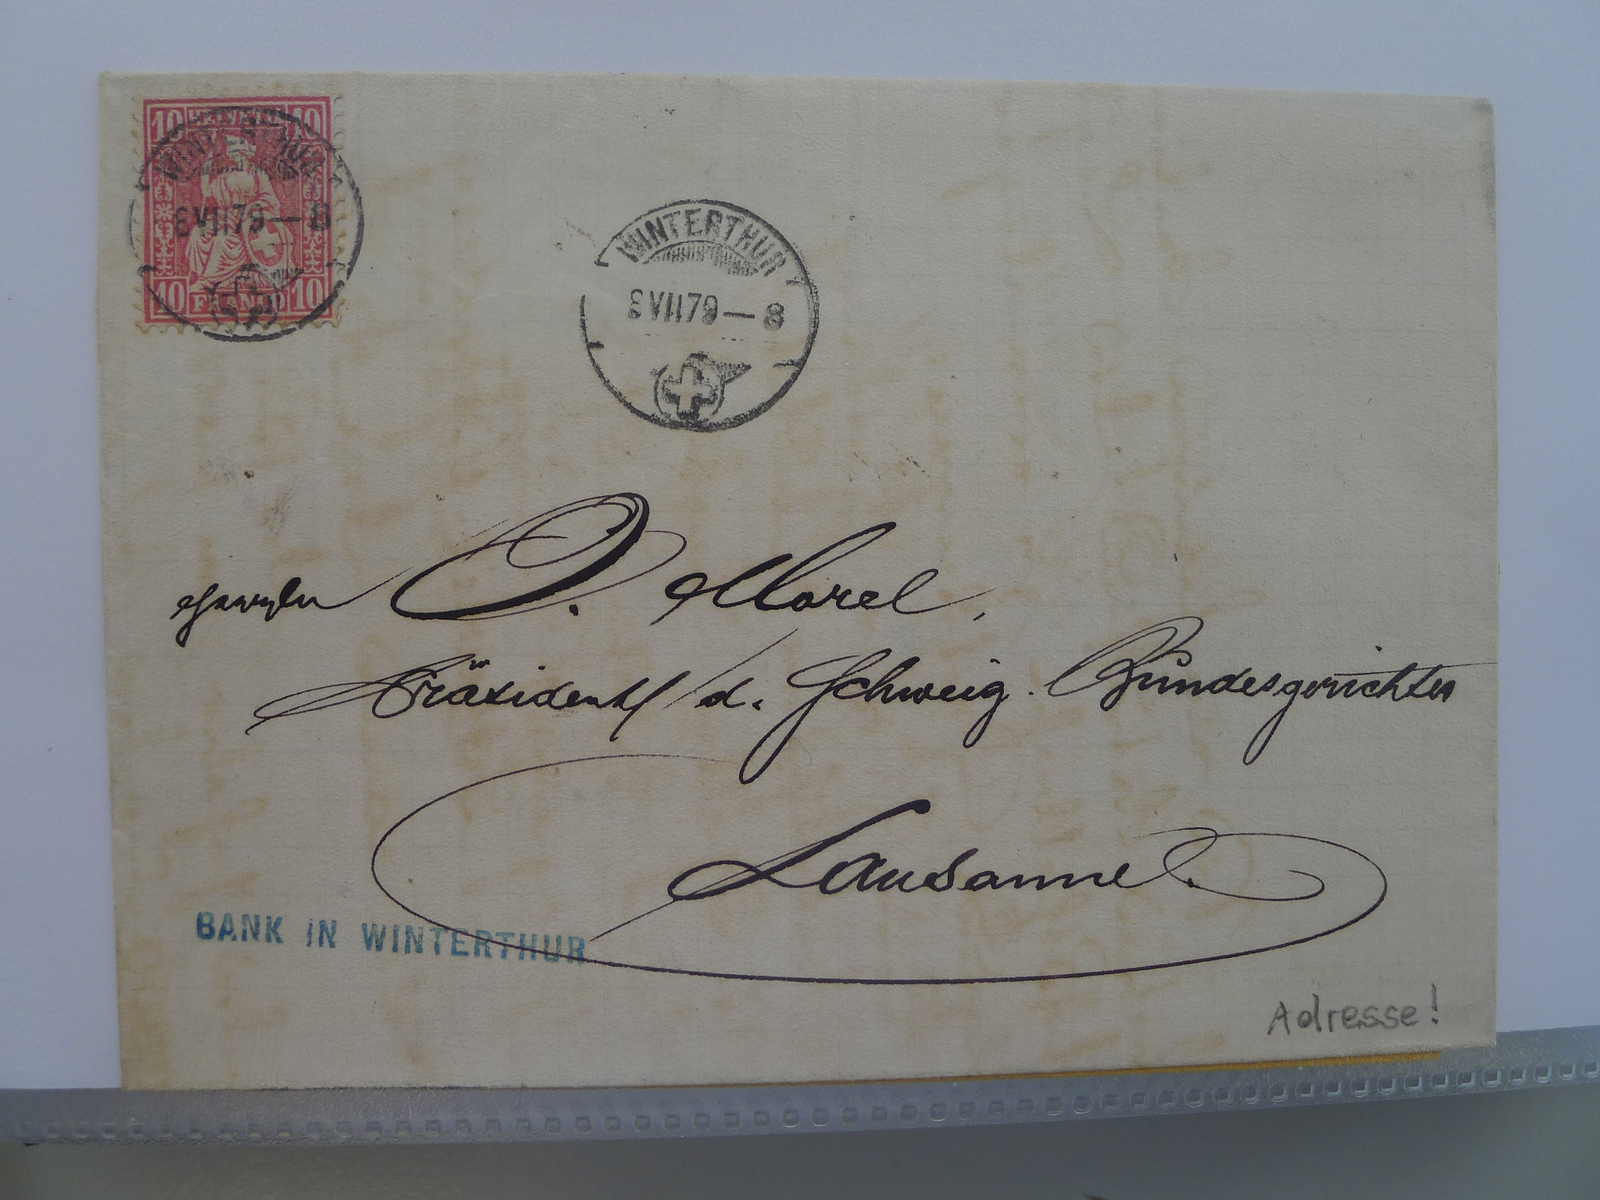 10 HELVETIA 10
10 FRANCO 10
WINTERTHUR
8 VII 79 — 8
WINTERTHUR
8 VII 79 — 8
Herrn D. Morel,
Präsident d. Schweiz. Bundesgerichtes
Lausanne.
BANK IN WINTERTHUR
Adresse!